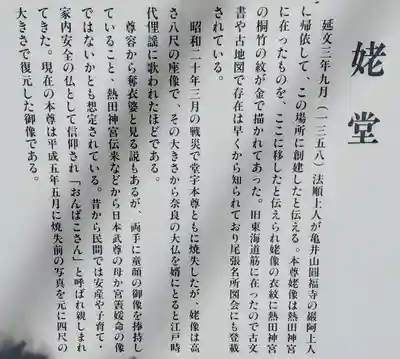 姥堂
延文三年九月(一三五八)法順上人が亀井山圓福寺の厳阿上人
に帰依して、この場所に創建したと伝える。本尊姥像は熱田神宮
に在ったものを、ここに移したと伝えられ姥像の衣紋に熱田神宮
の桐竹の紋が金で描かれてあった。旧東海道筋に在ったので古文
書や古地図で存在は早くから知られており尾張名所図会にも登載
されている。
昭和二十年三月の戦災で堂宇本尊ともに焼失したが、姥像は高
さ八尺の坐像で、その大きさから奈良の大仏を婿にとると江戸時
代俚謡に歌われたほどである。
尊容から奪衣婆と見る説もあるが、両手に童顔の御像を捧持し
ていること、熱田神宮伝来などから日本武尊の母か宮簀媛命の像
ではないかとも想定されている。昔から民間では安産や子育て・
家内安全の仏として信仰され「おんばこさん」と呼ばれ親しまれ
てきた。現在の本尊は平成五年五月に焼失前の写真を元に四尺の
大きさで復元した御像である。